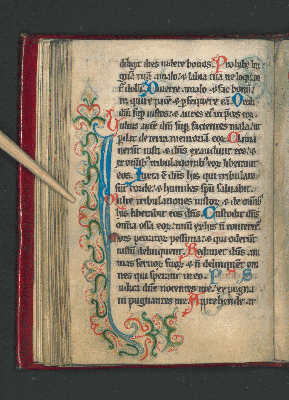 diligit dies uidere bonos. Prohibe lin
guā tuā a malo: ⁊ labia tua ne loquan
t̄ dolū. Diuerte a malo ⁊ fac bonū:
inquire pacē ⁊ ꝑsequere eā. Oculi
dn̄i sup iustos: ⁊ aures ei' in p̄ces eoꝝ
Uultus autē dn̄i sup facientes mala: ut
ꝑdat de terra memoriā eoꝝ. Clama
uerūt iusti ⁊ dn̄s exaudiuit eos: ⁊
ex omīb' tribulationib' eoꝝ liberauit
eos. Iuxta ē dn̄s his qui tribulato
sūt corde: ⁊ humiles spū saluabit.
Multe tribulationes iustoꝝ: ⁊ de omīb'
his liberabit eos dn̄s. Custodit dn̄s
omnia ossa eoꝝ: unū ex his n̄ conteret'.
Mors peccatoꝝ pessima: ⁊ qui oderūt
iustū delinquent. Redimet dn̄s ani
mas seruoꝝ suoꝝ: ⁊ n̄ delinquent om
nes qui sperant in eo.
Iudica dn̄e nocentes me: expugna
inpugnantes me. Apprehende ar